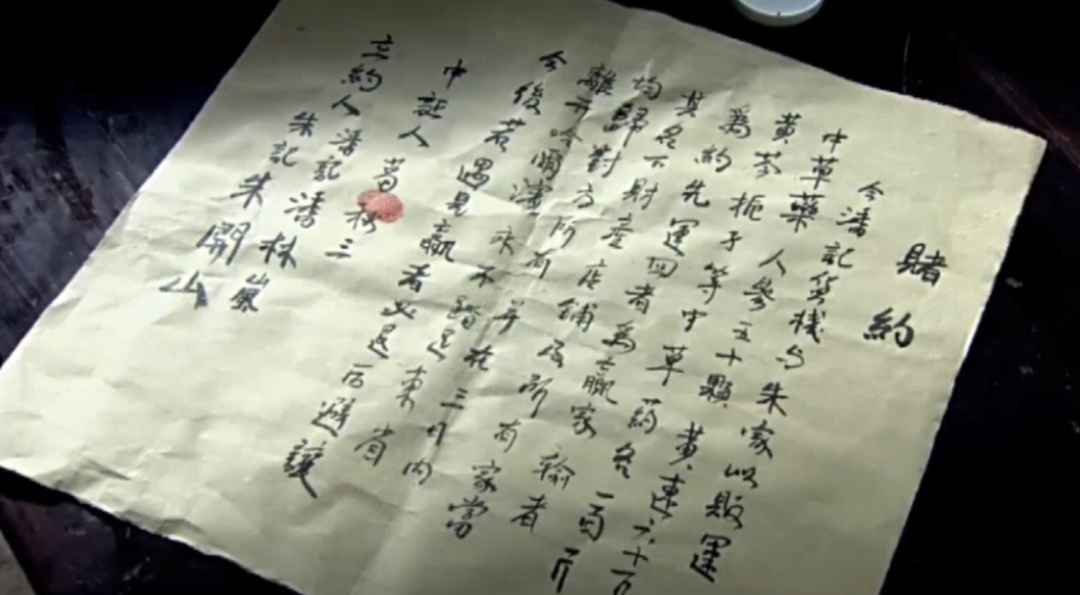 賭約
今潘記貨棧与朱家以販運
中草藥人參五十顆黃連六十斤
黃芩扼子等中草药各一百斤
為約先運回者為贏家輸者
其名下財產店鋪及所有家當
均歸對方所有并在三月内
離开哈爾濱永不踏足東省
今後若遇見贏者必退后避讓
中証人
立約人潘記潘林
朱記朱開山